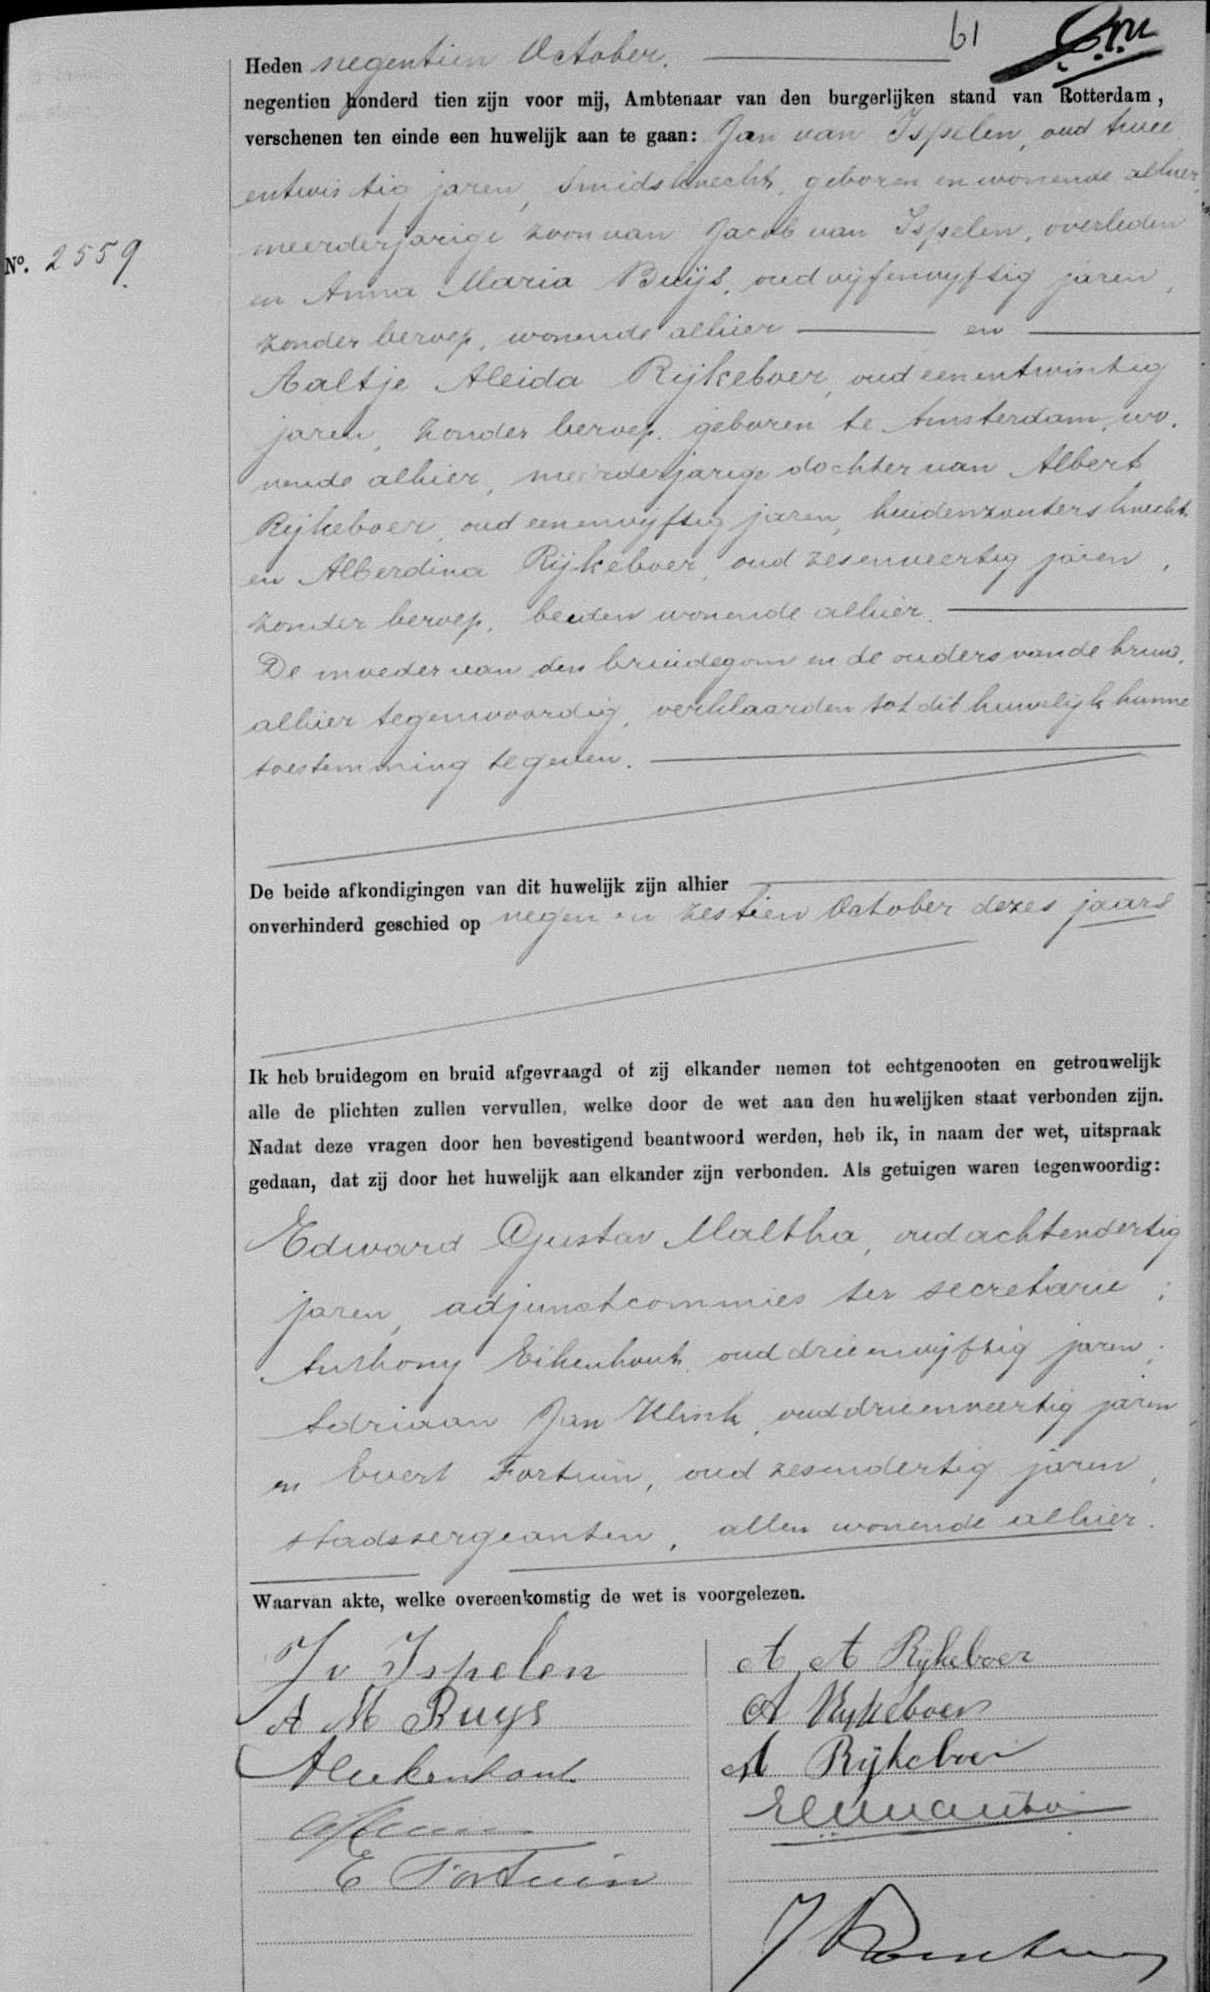 61
Heden negentien October.
negentien honderd tien zijn voor mij, Ambtenaar van den burgerlijken stand van Rotterdam,
verschenen ten einde een huwelijk aan te gaan: Jan van Ispelen, oud twee
entwintig jaren, smidsknecht, geboren en wonende alhier,
meerderjarige zoon van Jacob van Ispelen, overleden
No. 2559.
en Anna Maria Buijs, oud vijfenvijftig jaren,
zonder beroep, wonende alhier en
Aaltje Aleida Rijkeboer, oud eenentwintig
jaren, zonder beroep, geboren te Amsterdam, wo.
nende alhier, meerderjarige dochter van Albert
Rijkeboer, oud eenenvijftig jaren, huidenzoutersknecht
en Alberdina Rijkeboer, oud zesenveertig jaren,
zonder beroep, beiden wonende alhier.
De moeder van den bruidegom en de ouders van de bruid,
alhier tegenwoordig, verklaarden tot dit huwelijk hunne
toestemming te geven.
De beide afkondigingen van dit huwelijk zijn alhier
onverhinderd geschied op negen en zestien October dezes jaars
Ik heb bruidegom en bruid afgevraagd of zij elkander nemen tot echtgenooten en getrouwelijk
alle de plichten zullen vervullen, welke door de wet aan den huwelijken staat verbonden zijn.
Nadat deze vragen door hen bevestigend beantwoord werden, heb ik, in naam der wet, uitspraak
gedaan, dat zij door het huwelijk aan elkander zijn verbonden. Als getuigen waren tegenwoordig:
Edward Gustav Maltha, oud achtendertig
jaren, adjunctcommies ter secretarie;
Anthony Eikenhout, oud drieenvijftig jaren;
Adriaan Jan Klink, oud drieenveertig jaren
en Evert Fortuin, oud zesendertig jaren,
stadssergeanten, allen wonende alhier.
Waarvan akte, welke overeenkomstig de wet is voorgelezen.
J v Ispelen
A A Rijkeboer
A M Buys
A Rykeboer
A Eikenhout
A Rijkeboer
E Fortuin